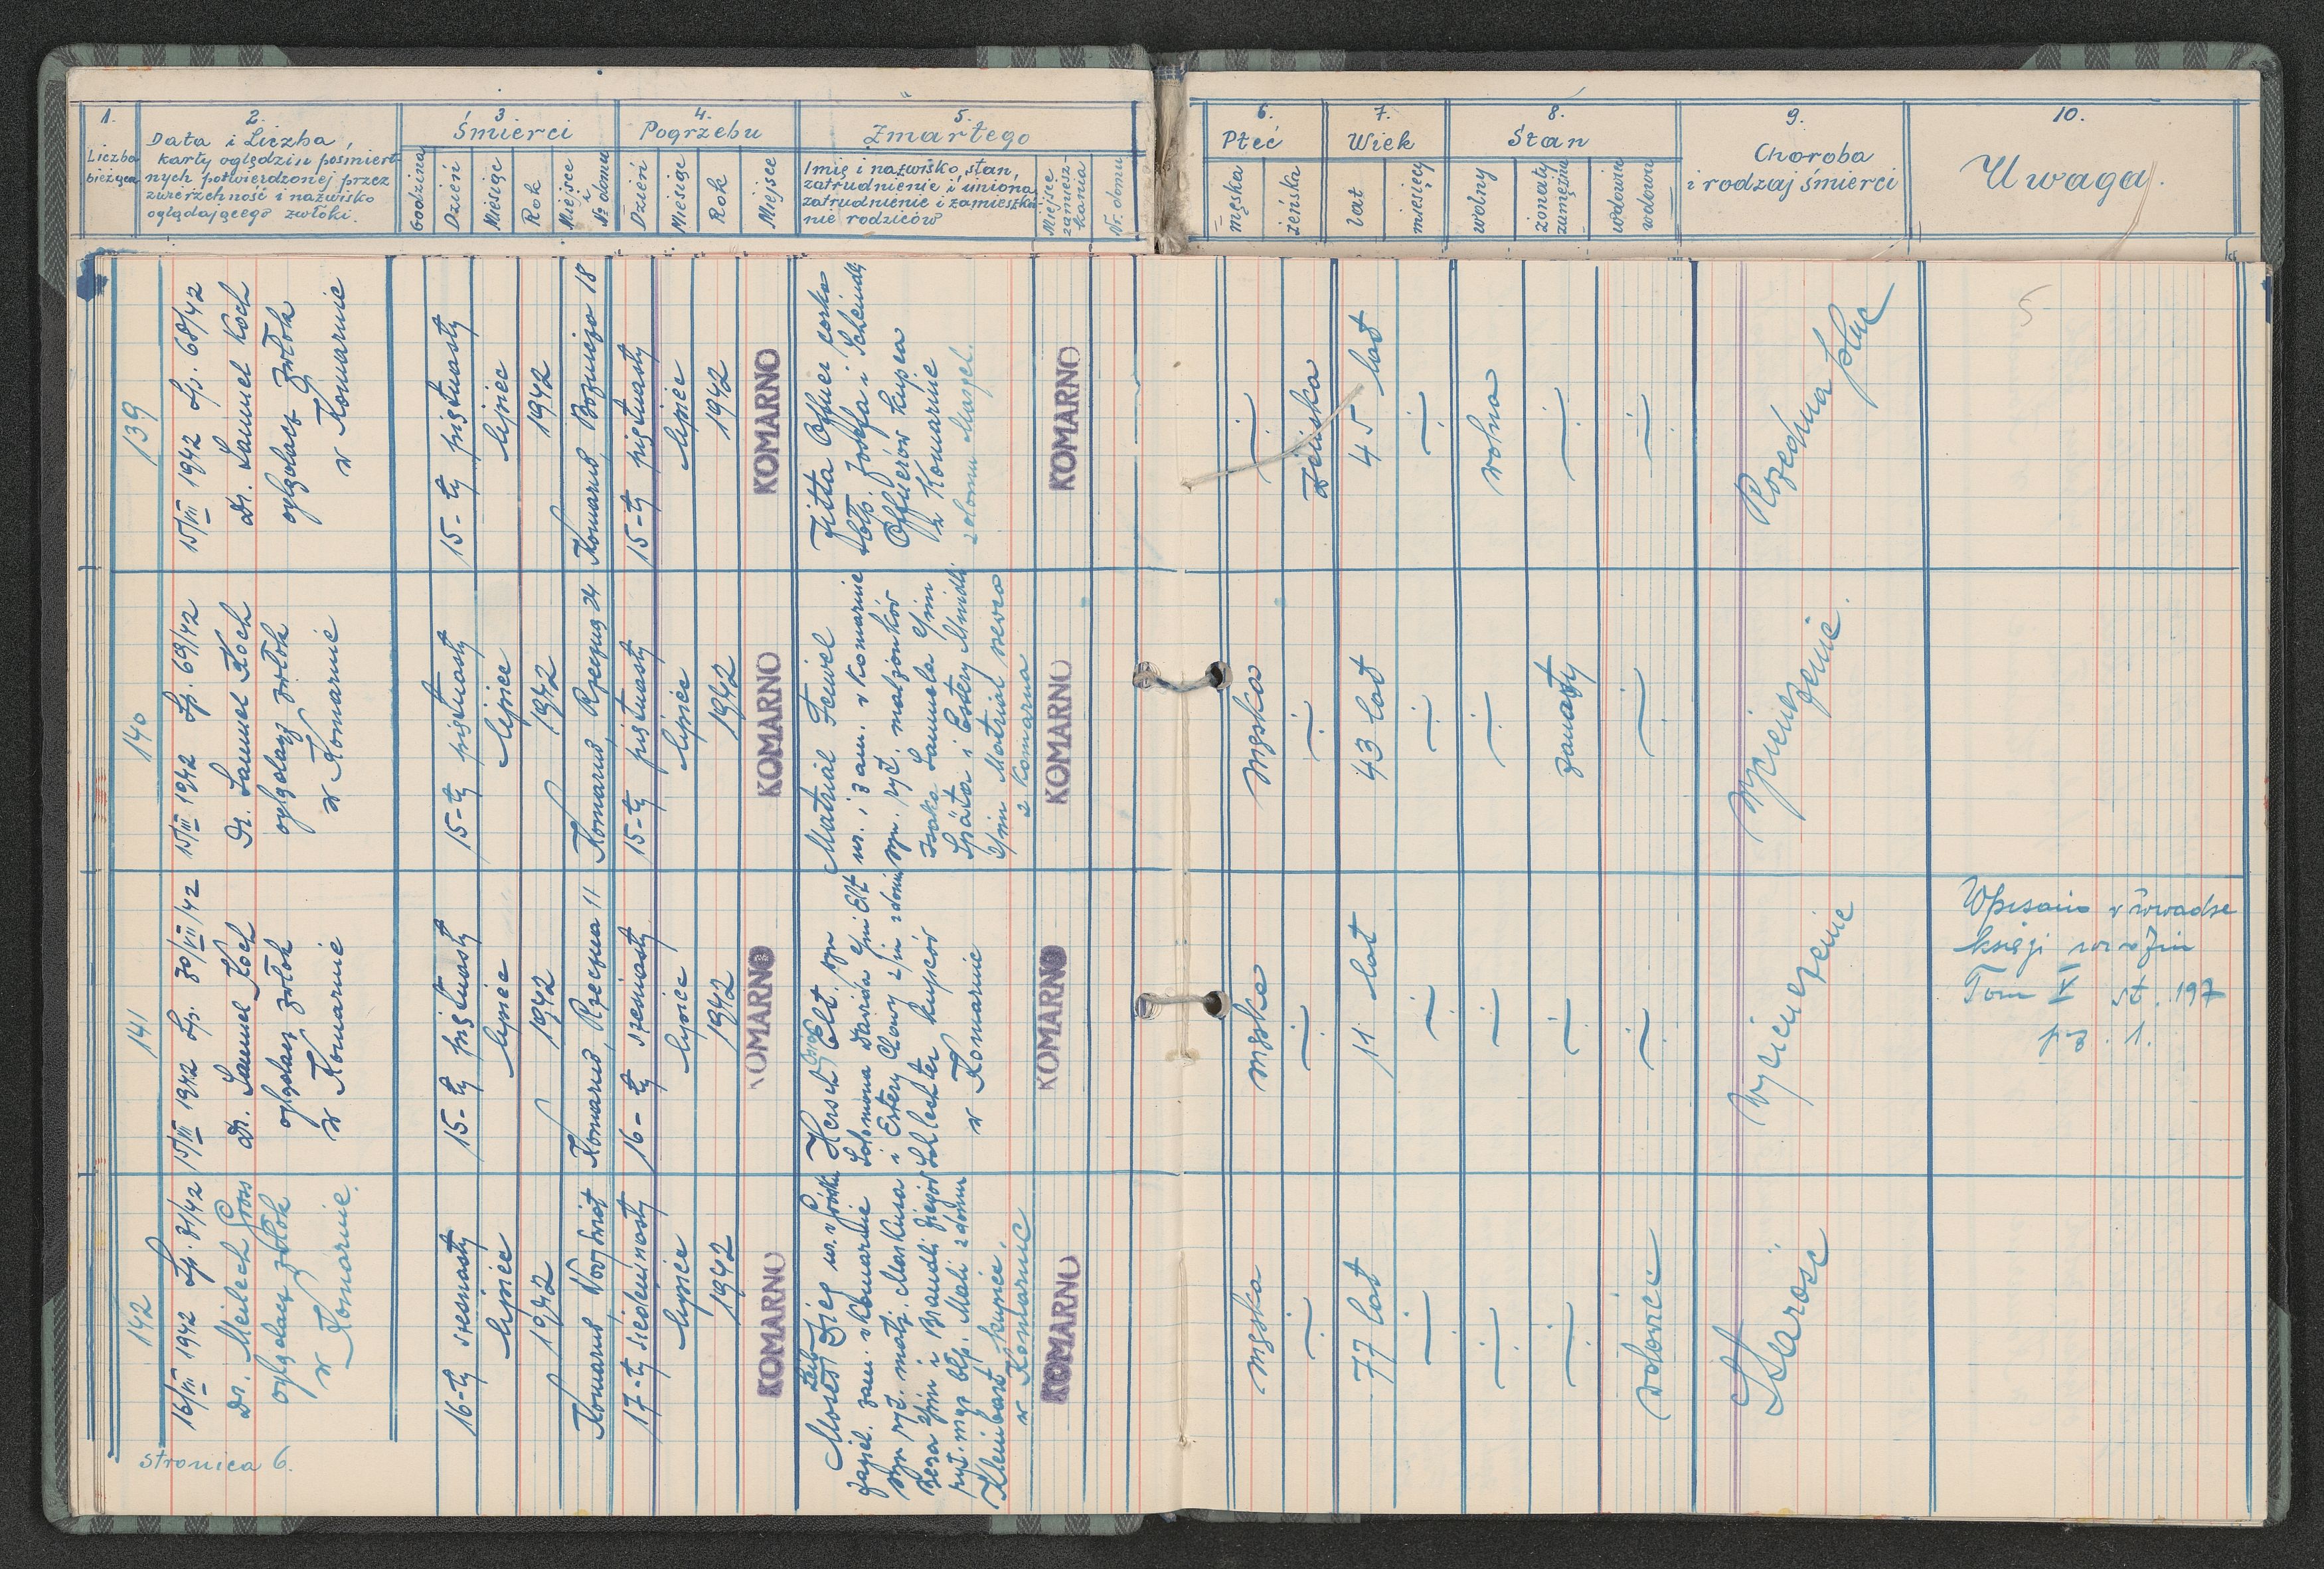 1.
Liczba
bieżąca
2.
Data i Liczba
karty oględzin pośmiert-
nych potwierdzonej przez
zwierzchność i nazwisko
oglądającego zwłoki.
3
Śmierci
Godzina
Dzień
Miesiąc
Rok
Miejsce
i
№ domu
4.
Pogrzebu
Dzień
Miesiąc
Rok
Miejsce
5.
Zmarłego
Imię i nazwisko, stan,
zatrudnienie i imiona,
zatrudnienie i zamieszka
nie rodziców
Miejsce
zamiesz-
kania
Nr. domu
6.
Płeć
męska
żeńska
7.
Wiek
lat
miesięcy
8.
Stan
wolny
żonaty
zamężna
wdowiec
wdowa
9.
Choroba
i rodzaj śmierci
10.
Uwaga.
139
15/VII 1942 Lp. 68/42
Dr. Samuel Koch
oglądacz zwłok
w Komarnie
15-ty piętnasty
lipiec
1942
Komarno, Boznicza 18
15-ty piętnasty
lipiec
1942
KOMARNO
Offner corka
Josefa i Scheindli
Offnerów kupca
w Komarnie
z domu Mazel.
KOMARNO
żeńska
45 lat
wolna
Rozedma płuc
5
140
15/VII 1942 Lp. 69/42
Dr. Samuel Koch
oglądacz zwłok
w Komarnie
15-ty piętnasty
lipiec
1942
Komarno, Rzeczna 24
15-ty piętnasty
lipiec
1942
KOMARNO
Matrial Feiwel
ur. i zam. w Komarnie
syn. ryt. małżonków
Izaka Samuela
i Estery
Matrial
z Komarna
KOMARNO
męska
43 lat
żonaty
Wycieńczenie.
141
15/VII 1942 Lp. 70/VII/42
Dr. Samuel Koch
oglądacz zwłok
w Komarnie
15-ty piętnasty
lipiec
1942
Komarno, Rzeczna 11
16-ty szesnasty
lipiec
1942
KOMARNO
Hersch Elt. syn
Salomona Dawida Elt
i Estery Chawy z domu
Schlechter kupców
w Komarnie
KOMARNO
męska
11 lat
Wycieńczenie
Wpisano
księgi urodzin
Tom X st. 197
142
16/VII 1942 Lp. 71/42
Dr. Meilech Gross
oglądacz zwłok
w Komarnie.
16-ty szesnasty
lipiec
1942
Komarno, Nowy Świat
17-ty siedemnasty
lipiec
1942
KOMARNO
Moses Zieg ur. w Gródku
zam. w Komarnie
syn ryt. małż. Markusa
Bera i Braundli Ziegów
ryt. mąż błp. Mali z domu
Kleinbart kupiec.
w Komarnie
KOMARNO
męska
77 lat
wdowiec
Starość
stronica 6.